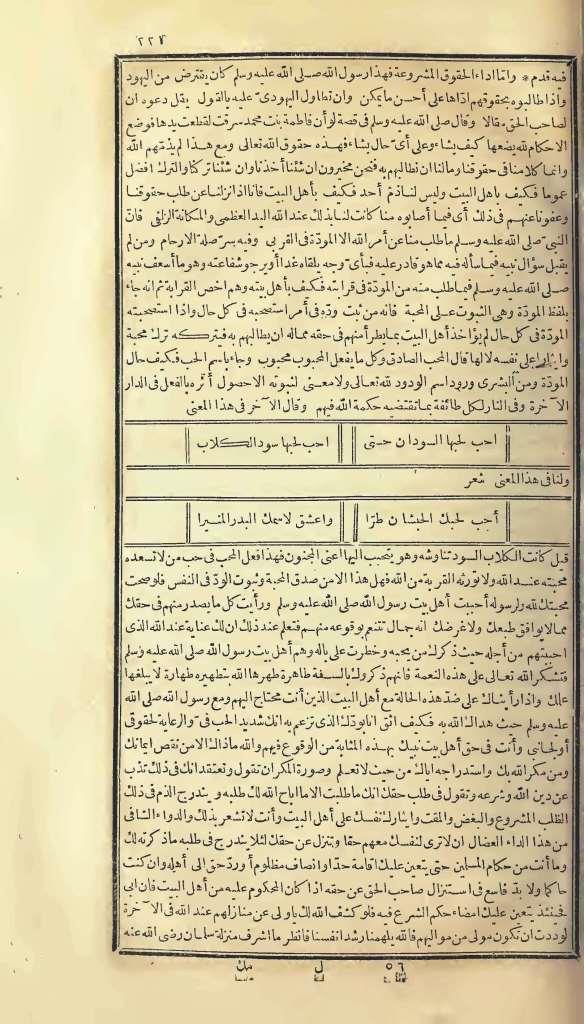 ٢٢٧
فيه قدم * واما اداء الحقوق المشروعة فهذا رسول الله صلى الله عليه وسلم كان يقترض من اليهود
واذا طالبوه بحقوقهم اداها على أحسن ما يمكن وان تطاول اليهودى عليه بالقول يقل دعوه ان
لصاحب الحق مقالا وقال صلى الله عليه وسلم فى قصة لوأن فاطمة بنت محمد سرقت لقطعت يدها فوضع
الاحكام لله يضعها كيف يشاء وعلى أى حال يشاء فهذه حقوق الله تعالى ومع هذا لم يذمهم الله
وانما كلامنا فى حقوقنا ومالنا ان نطالبهم به فنحن مخيرون ان شئنا أخذنا وان شئنا تركنا والترك افضل
عموما فكيف باهل البيت وليس لنا ذم أحد فكيف بأهل البيت فانا اذا نزلنا عن طلب حقوقنا
وعفونا عنهم فى ذلك أى فيما أصابوه منا كانت لنا بذلك عند الله اليد العظمى والمكانة الزلفى فان
النبى صلى الله عليه وسلم ما طلب منا عن أمر الله الا المودة فى القربى وفيه سر صلة الارحام ومن لم
يقبل سؤال نبيه فيما سأله فيه مما هو قادر عليه فبأى وجه يلقاه غدا أو يرجو شفاعته وهو ما أسعف نبيه
صلى الله عليه وسلم فيما طلب منه من المودة فى قرابته فكيف بأهل بيته وهم اخص القرابة ثم انه جاء
بلفظ المودة وهى الثبوت على المحبة فانه من ثبت وده فى أمر استصحبه فى كل حال واذا استصحبته
المودة فى كل حال لم يؤاخذ أهل البيت بما يطرأ منهم فى حقه مما له ان يطالبهم به فيتركه ترك محبة
وايثارا على نفسه لا لها قال المحب الصادق وكل ما يفعل المحبوب محبوب وجاء باسم الحب فكيف حال
المودة ومن البشرى ورود اسم الودود لله تعالى ولا معنى لثبوته الاحصول أثره بالفعل فى الدار
الآخرة وفى النار لكل طائفة بما تقتضيه حكمة الله فيهم وقال الآخر فى هذا المعنى
احب لحبها السودان حتى احب لحبها سود الكلاب
ولنا فى هذا المعنى شعر
أحب لحبك الحبشان طرا واعشق لاسمك البدر المنيرا
قيل كانت الكلاب السود تناوشه وهو يتحبب اليها اعنى المجنون فهذا فعل المحب فى حب من لا تسعده
محبته عند الله ولا تورثه القربة من الله فهل هذا الا من صدق المحبة وثبوت الود فى النفس فلو صحت
محبتك لله ولرسوله أحببت أهل بيت رسول الله صلى الله عليه وسلم ورأيت كل ما يصدر منهم فى حقك
مما لا يوافق طبعك ولا غرضك انه جمال تتنعم بوقوعه منهم فتعلم عند ذلك ان لك عناية عند الله الذى
احببتهم من أجله حيث ذكرك من يحبه وخطرت على باله وهم أهل بيت رسول الله صلى الله عليه وسلم
فتشكر الله تعالى على هذه النعمة فانهم ذكروك بالسنة طاهرة طهرها الله بتطهيره طهارة لا يبلغها
علمك واذا رأيناك على ضد هذه الحالة مع أهل البيت الذين أنت محتاج اليهم ومع رسول الله صلى الله
عليه وسلم حيث هداك الله به فكيف اثق انا بودك الذى تزعم به انك شديد الحب فى والرعاية لحقوقى
أو لجانبى وأنت فى حق أهل بيت نبيك بهذه المثابة من الوقوع فيهم والله ماذاك الا من نقص ايمانك
ومن مكر الله بك واستدراجه اياك من حيث لا تعلم وصورة المكر ان تقول وتعتقد انك فى ذلك تذب
عن دين الله وشرعه وتقول فى طلب حقك انك ما طلبت الا ما اباح الله لك طلبه ويندرج الذم فى ذلك
الطلب المشروع والبغض والمقت وايثارك نفسك على أهل البيت وأنت لا تشعر بذلك والدواء الشافى
من هذا الداء العضال ان لا ترى لنفسك معهم حقا وتنزل عن حقك لئلا يندرج فى طلبه ما ذكرته لك
وما أنت من حكام المسلمين حتى يتعين عليك اقامة حد أو انصاف مظلوم أو رد حق الى أهله وان كنت
حاكما ولا بد فاسع فى استنزال صاحب الحق عن حقه اذا كان المحكوم عليه من أهل البيت فان ابى
فحينئذ يتعين عليك امضاء حكم الشرع فيه فلو كشف الله لك يا ولى عن منازلهم عند الله فى الآخرة
لوددت ان تكون مولى من مواليهم فالله يلهمنا رشد انفسنا فانظر ما اشرف منزلة سلمان رضى الله عنه
٥٦ ل مك